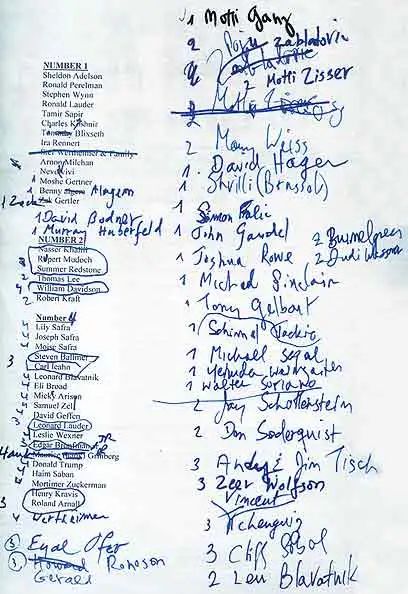 NUMBER 1
Sheldon Adelson
Ronald Perelman
Stephen Wynn
Ronald Lauder
Tamir Sapir
Charles Kushnir
Timothy Blixseth
Ira Rennert
Stef Wertheimer & Family
Arnon Milchan
1 Moshe Gertner
1 Benny Alagem
1 Zak Gertler
1 David Bodner
1 Murray Huberfeld
NUMBER 2
Nasser Khalili
Rupert Mudoch
Summer Redstone
2 Thomas Lee
4 William Davidson
2 Robert Kraft
Number 4
Lily Safra
Joseph Safra
Moise Safra
Steven Ballmer
3 Carl Icahn
Leonard Blavatnik
Eli Broad
Micky Arison
Samuel Zell
David Geffen
Leonard Lauder
Leslie Wexner
Edgar Bronfman JR
Hank Grinberg
Donald Trump
Haim Saban
Mortimer Zuckerman
Henry Kravis
3 Roland Arnall
4 Wertheimer
3 Eyal Ofer
3 Howard Ronson
Gerald
1 Motti Ganz
2 Zabladovic
2 Motti Zisser
2 Weiss
1 David Hager
1 Svilli (Brussol)
1 Simon Falic
1 John Gandel
2 Dudi
1 Joshua Rowe
1 Michael Sinclair
1 Tony Gelbart
1 Schimmel Jackie
1 Michael
1 Yehuda
1 Walter Soriano
2 Jay Schottenstein
2 Don Soderquist
3 Andy & Jim Tisch
3 Zeev Wolfson
Vincent
3 Tchenguiz
3 Cliff Sobol
2 Len Blavatnik